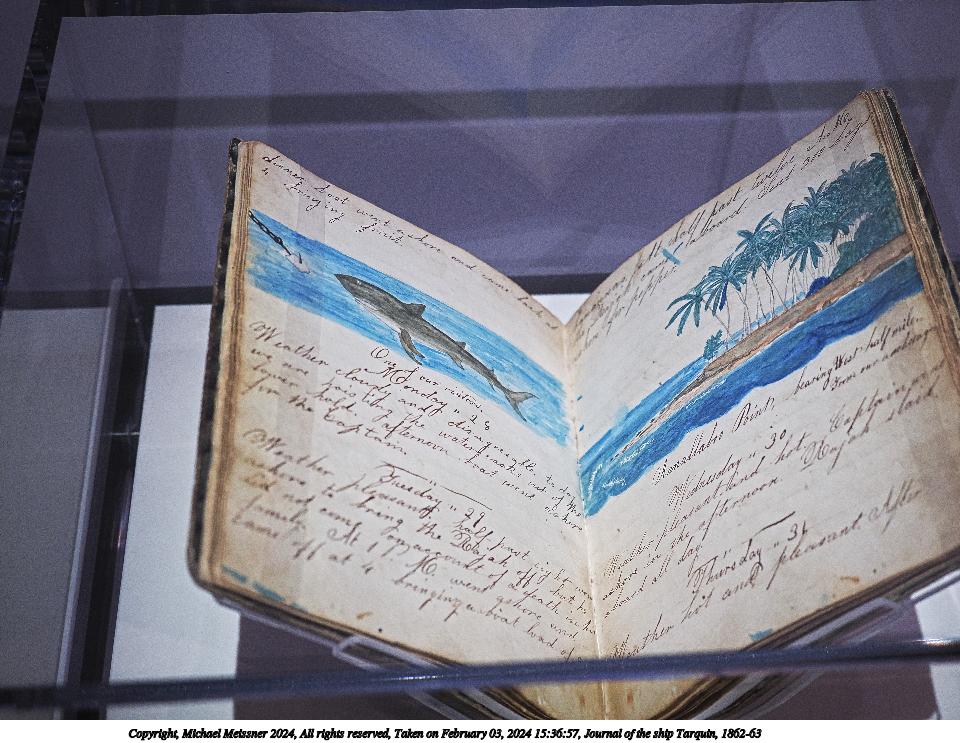 dinner boat went ashore and came back at
4 bringing fruit.
One of our visitors.
Monday " 28
Weather cloudy and disagreeable today
we are hoisting the water casks out of the
lower hold. Afternoon boat went ashore
for the Captain.
Tuesday " 29
Weather pleasant, half past
ashore to bring the Rajah off but he
did not come on account of a death in his
family. At 1 P.M. went ashore and
came off at 4 bringing a boat load of
half past twelve
pepper
Point, bearing West half mile.
from our anchorage
Wednesday " 30
Weather pleasant and hot. Captain
ashore in the afternoon. Rajah staid
aboard all day.
Thursday " 31
Weather hot and pleasant After
Copyright, Michael Meissner 2024, All rights reserved, Taken on February 03, 2024 15:36:57, Journal of the ship Tarquin, 1862-63